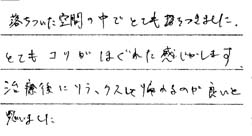 落ちついた空間の中でとても落ちつきました。
とてもコリがほぐれた感じがします
治療後にリラックスして休めるのが良いと
思いました